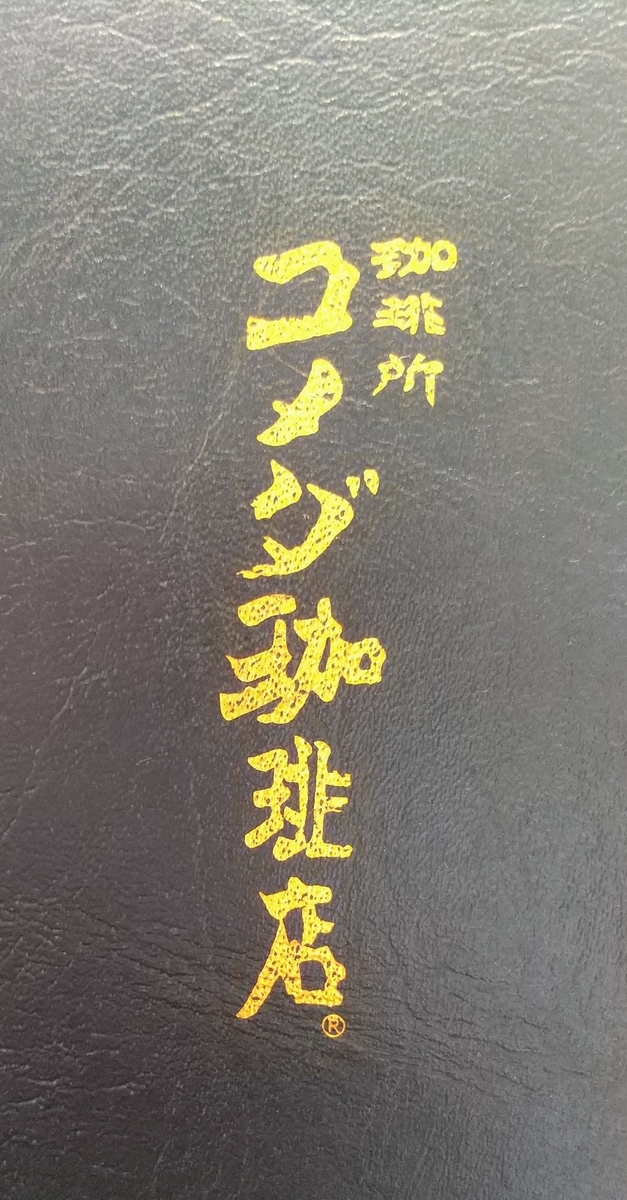 珈琲所
コメダ珈琲店®